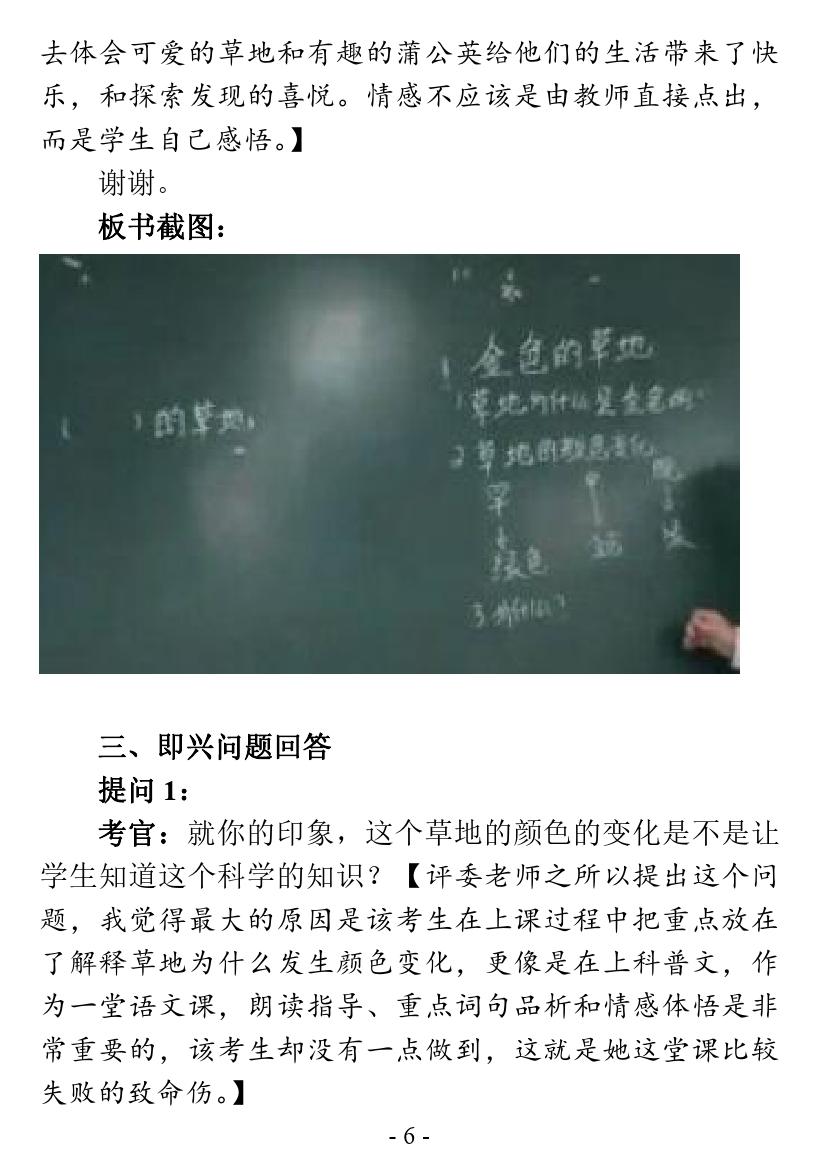 去体会可爱的草地和有趣的蒲公英给他们的生活带来了快
乐，和探索发现的喜悦。情感不应该是由教师直接点出，
而是学生自己感悟。】
谢谢。
板书截图：
（ ）的草地
金色的草地
1草地为什么是金色的
2草地的颜色变化
早
绿色
3为什么？
三、即兴问题回答
提问 1：
考官：就你的印象，这个草地的颜色的变化是不是让
学生知道这个科学的知识？【评委老师之所以提出这个问
题，我觉得最大的原因是该考生在上课过程中把重点放在
了解释草地为什么发生颜色变化，更像是在上科普文，作
为一堂语文课，朗读指导、重点词句品析和情感体悟是非
常重要的，该考生却没有一点做到，这就是她这堂课比较
失败的致命伤。】
- 6 -